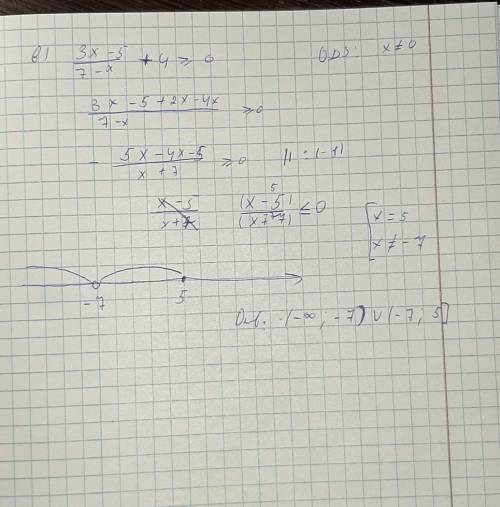 в) (3x - 5)/(7 - x) + 4 ≥ 0 ОДЗ: x ≠ 0
(3x - 5 + 2x - 4x)/(7 - x) ≥ 0
- (5x - 4x - 5)/(x + 7) ≥ 0 || : (-1)
(x - 5)/(x + 7) (x - 5)/(x + 7) ≤ 0 [ x = 5
x ≠ - 7
-7 5
Отв. (-∞; -7) ∪ (-7; 5]